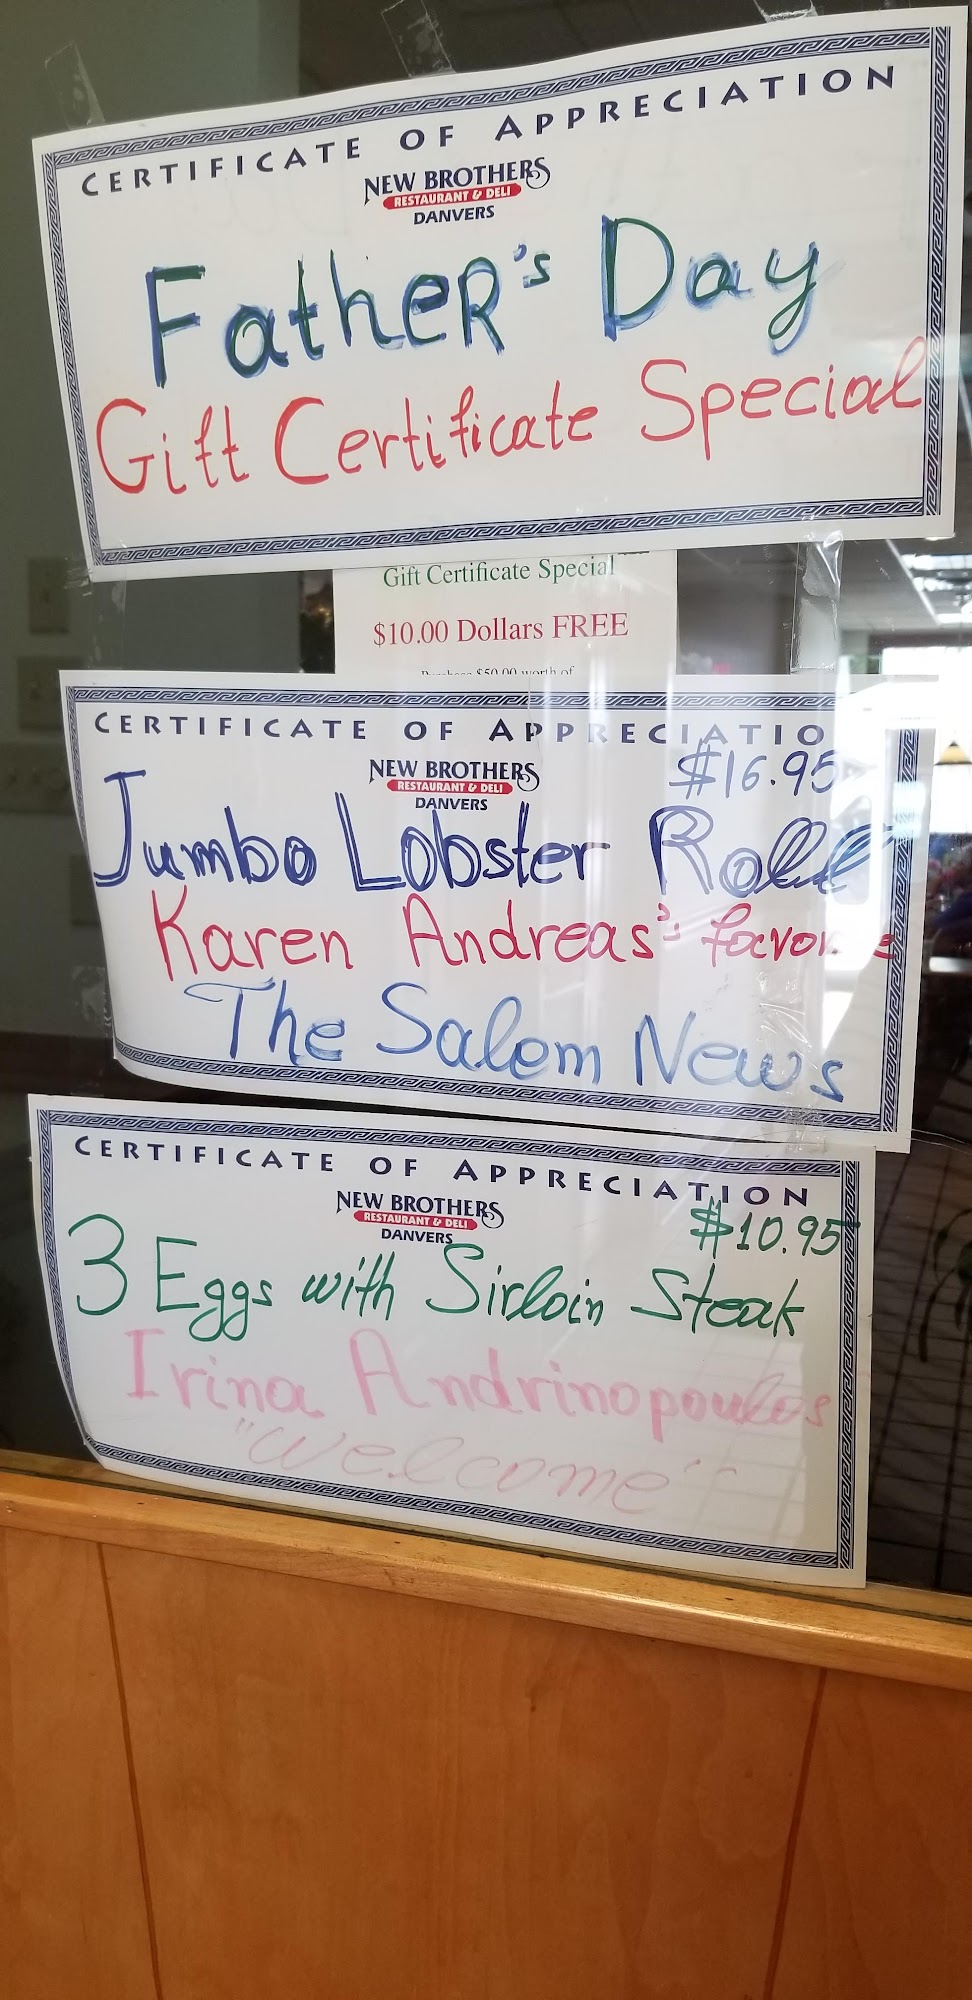 CERTIFICATE OF APPRECIATION
NEW BROTHERS
RESTAURANT & DELI
DANVERS
Father's Day
Gift Certificate Special
Gift Certificate Special
$10.00 Dollars FREE
Purchase $50.00 worth of
CERTIFICATE OF APPRECIATIO
$16.95
NEW BROTHERS
RESTAURANT & DELI
DANVERS
Jumbo Lobster Roll
Karen Andreas's
The Salem News
CERTIFICATE OF APPRECIATION
NEW BROTHERS
RESTAURANT & DELI
DANVERS
$10.95
3 Eggs with Sirloin Steak
Irina Andrinopoulos
"Welcome"